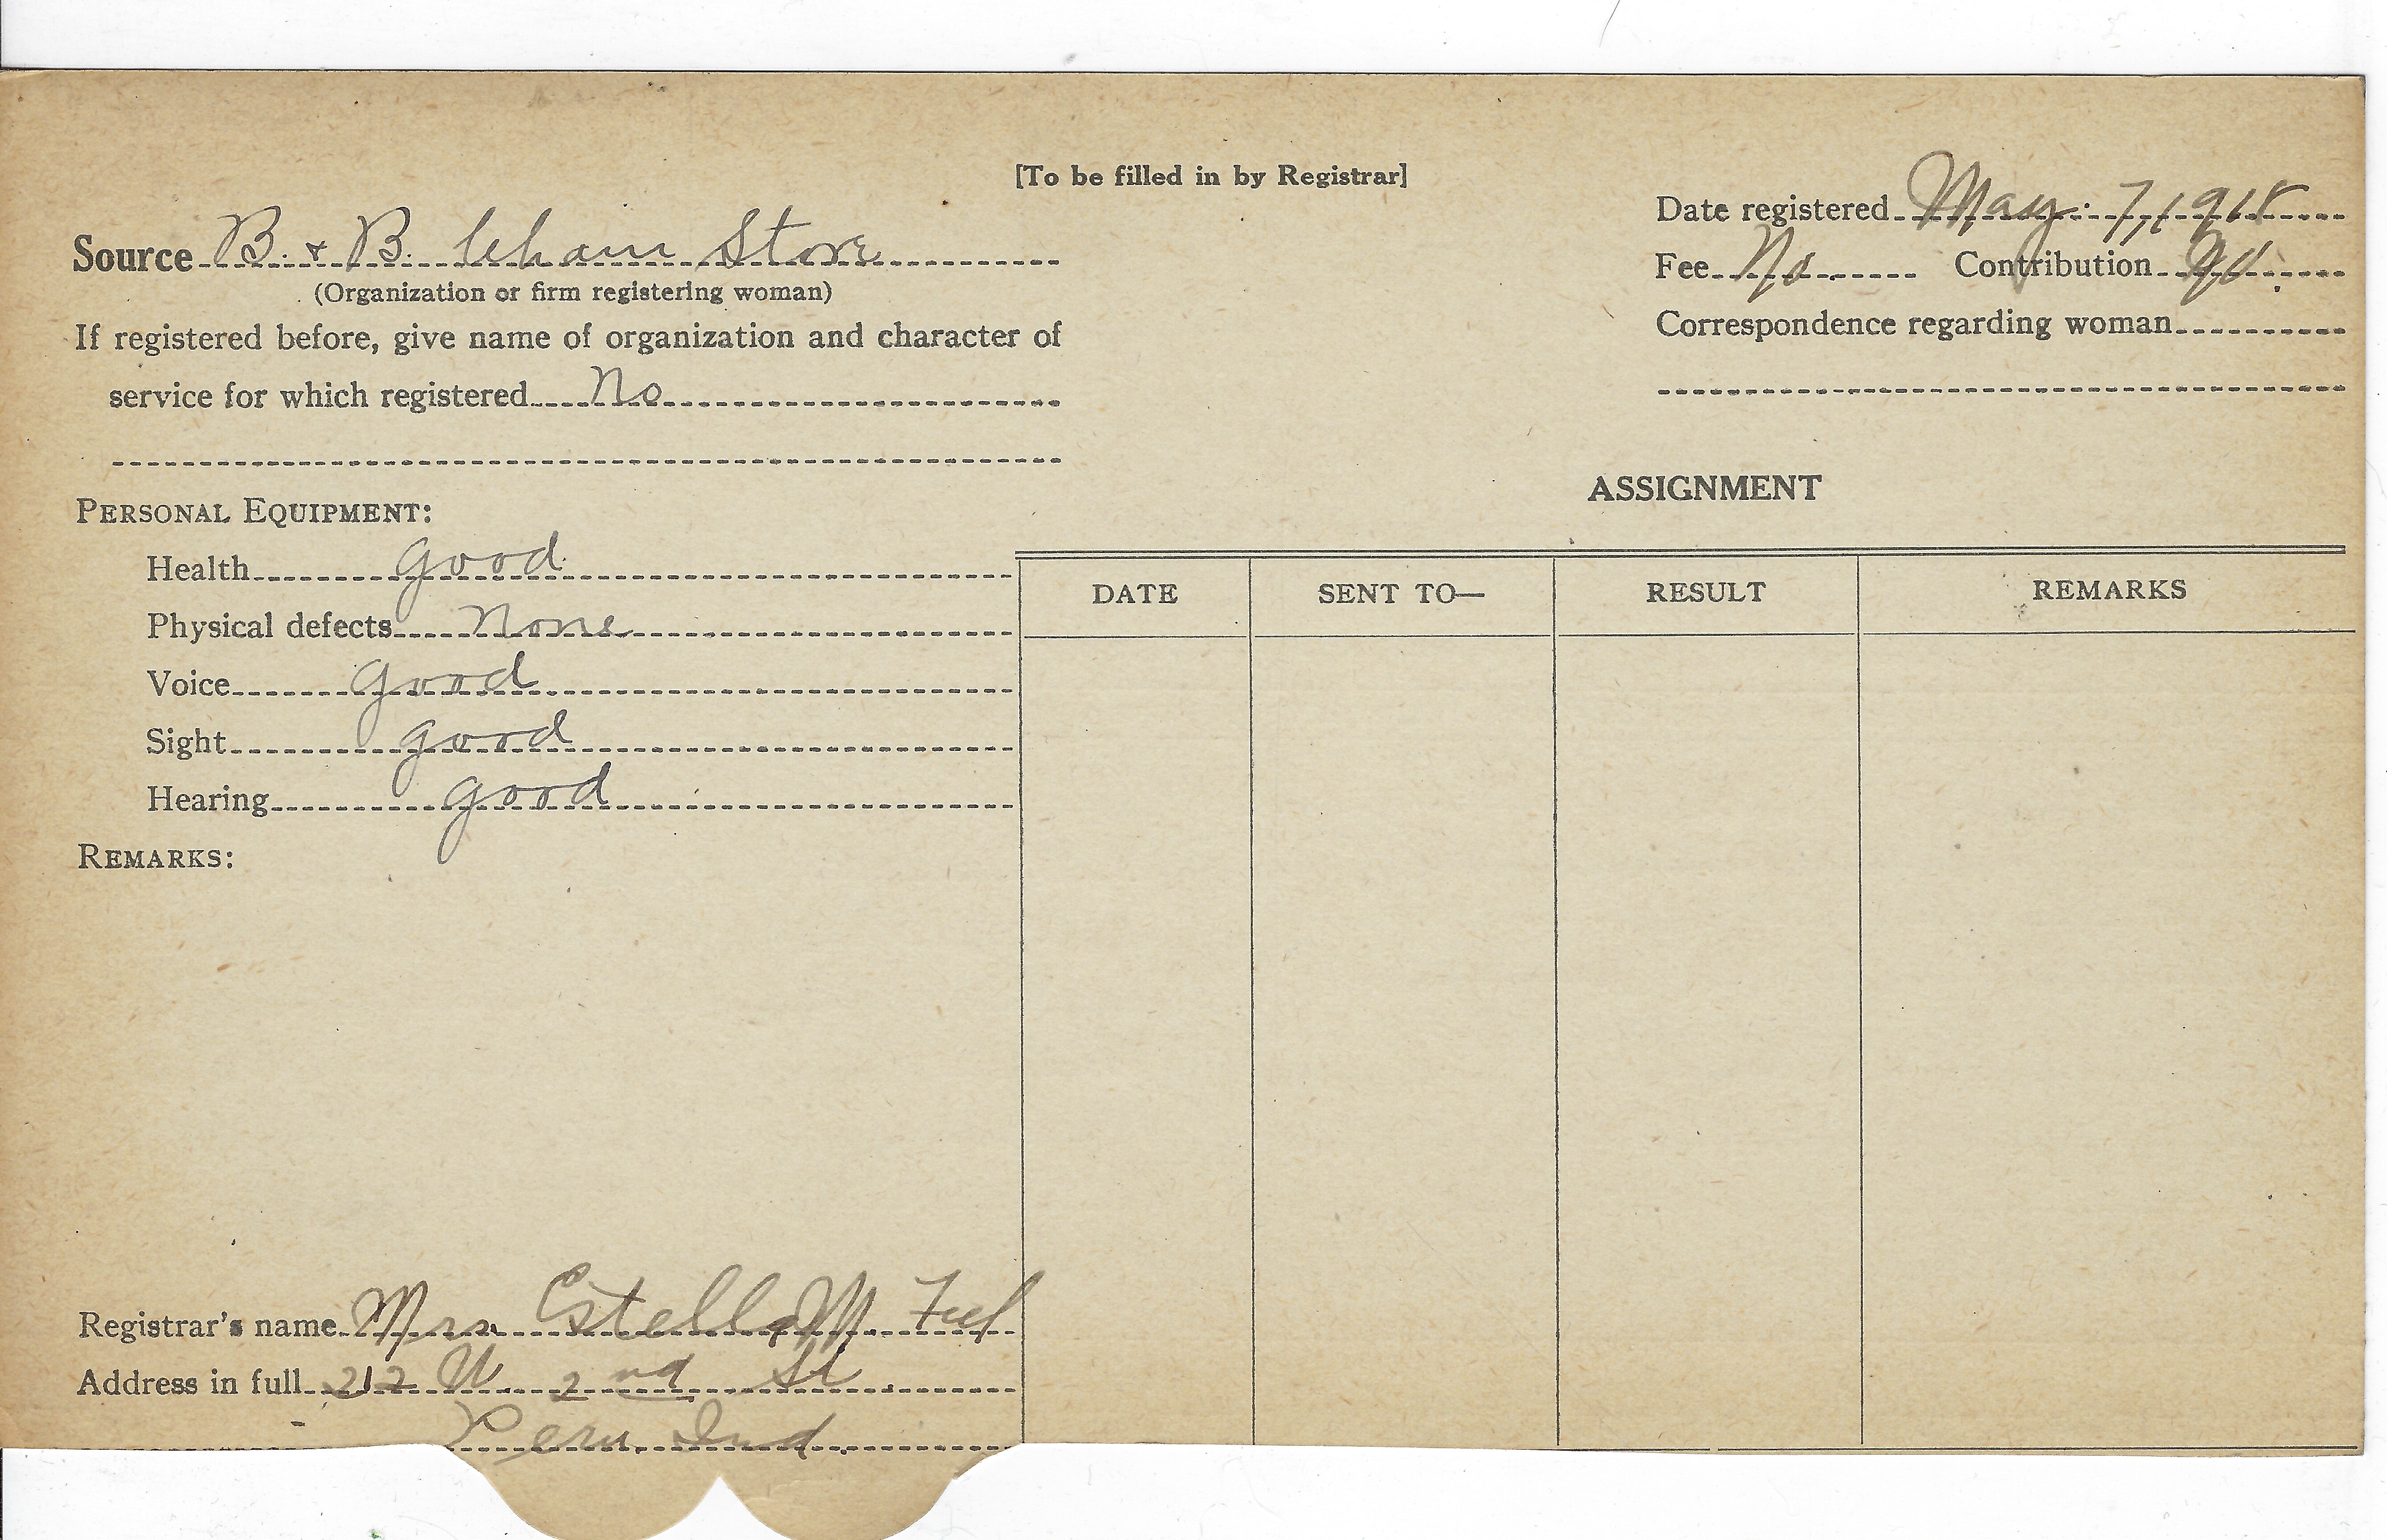 [To be filled in by Registrar]
Source B. & B. Cham Store
(Organization or firm registering woman)
If registered before, give name of organization and character of
service for which registered No
Date registered May 7, 1918
Fee No Contribution No.
Correspondence regarding woman
PERSONAL EQUIPMENT:
Health good
Physical defects None
Voice good
Sight good
Hearing good
REMARKS:
ASSIGNMENT
DATE SENT TO— RESULT REMARKS
Registrar's name Mrs. Estella M.
Address in full 212 W. 2nd St
Peru, Ind.